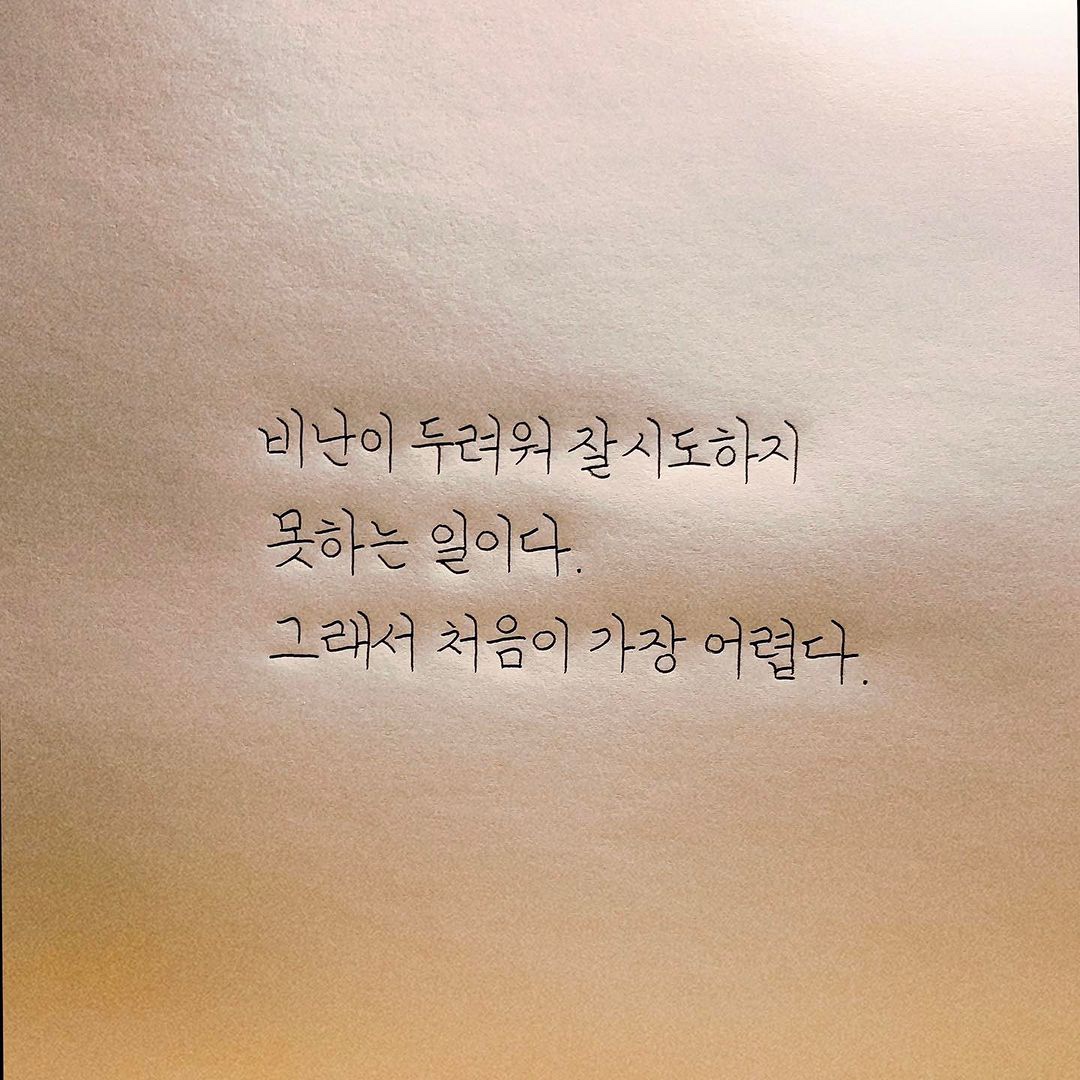 비난이 두려워 잘 시도하지
못하는 일이다.
그래서 처음이 가장 어렵다.